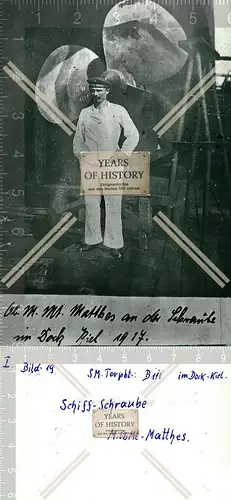 YEARS
OF HISTORY
Zeitgeschichte
aus den letzten 100 Jahren
Ob. M. Mt. Matthes an der Schraube
im Dock Kiel 1917.
I Bild-19 SM-Torpbt: B im Dock-Kiel.
Schiff-Schraube
YEARS
OF HISTORY
Matthes.